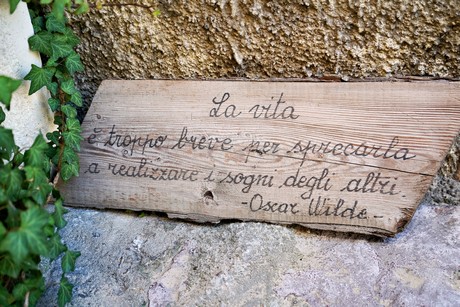 La vita
è troppo breve per sprecarla
a realizzare i sogni degli altri.
- Oscar Wilde -